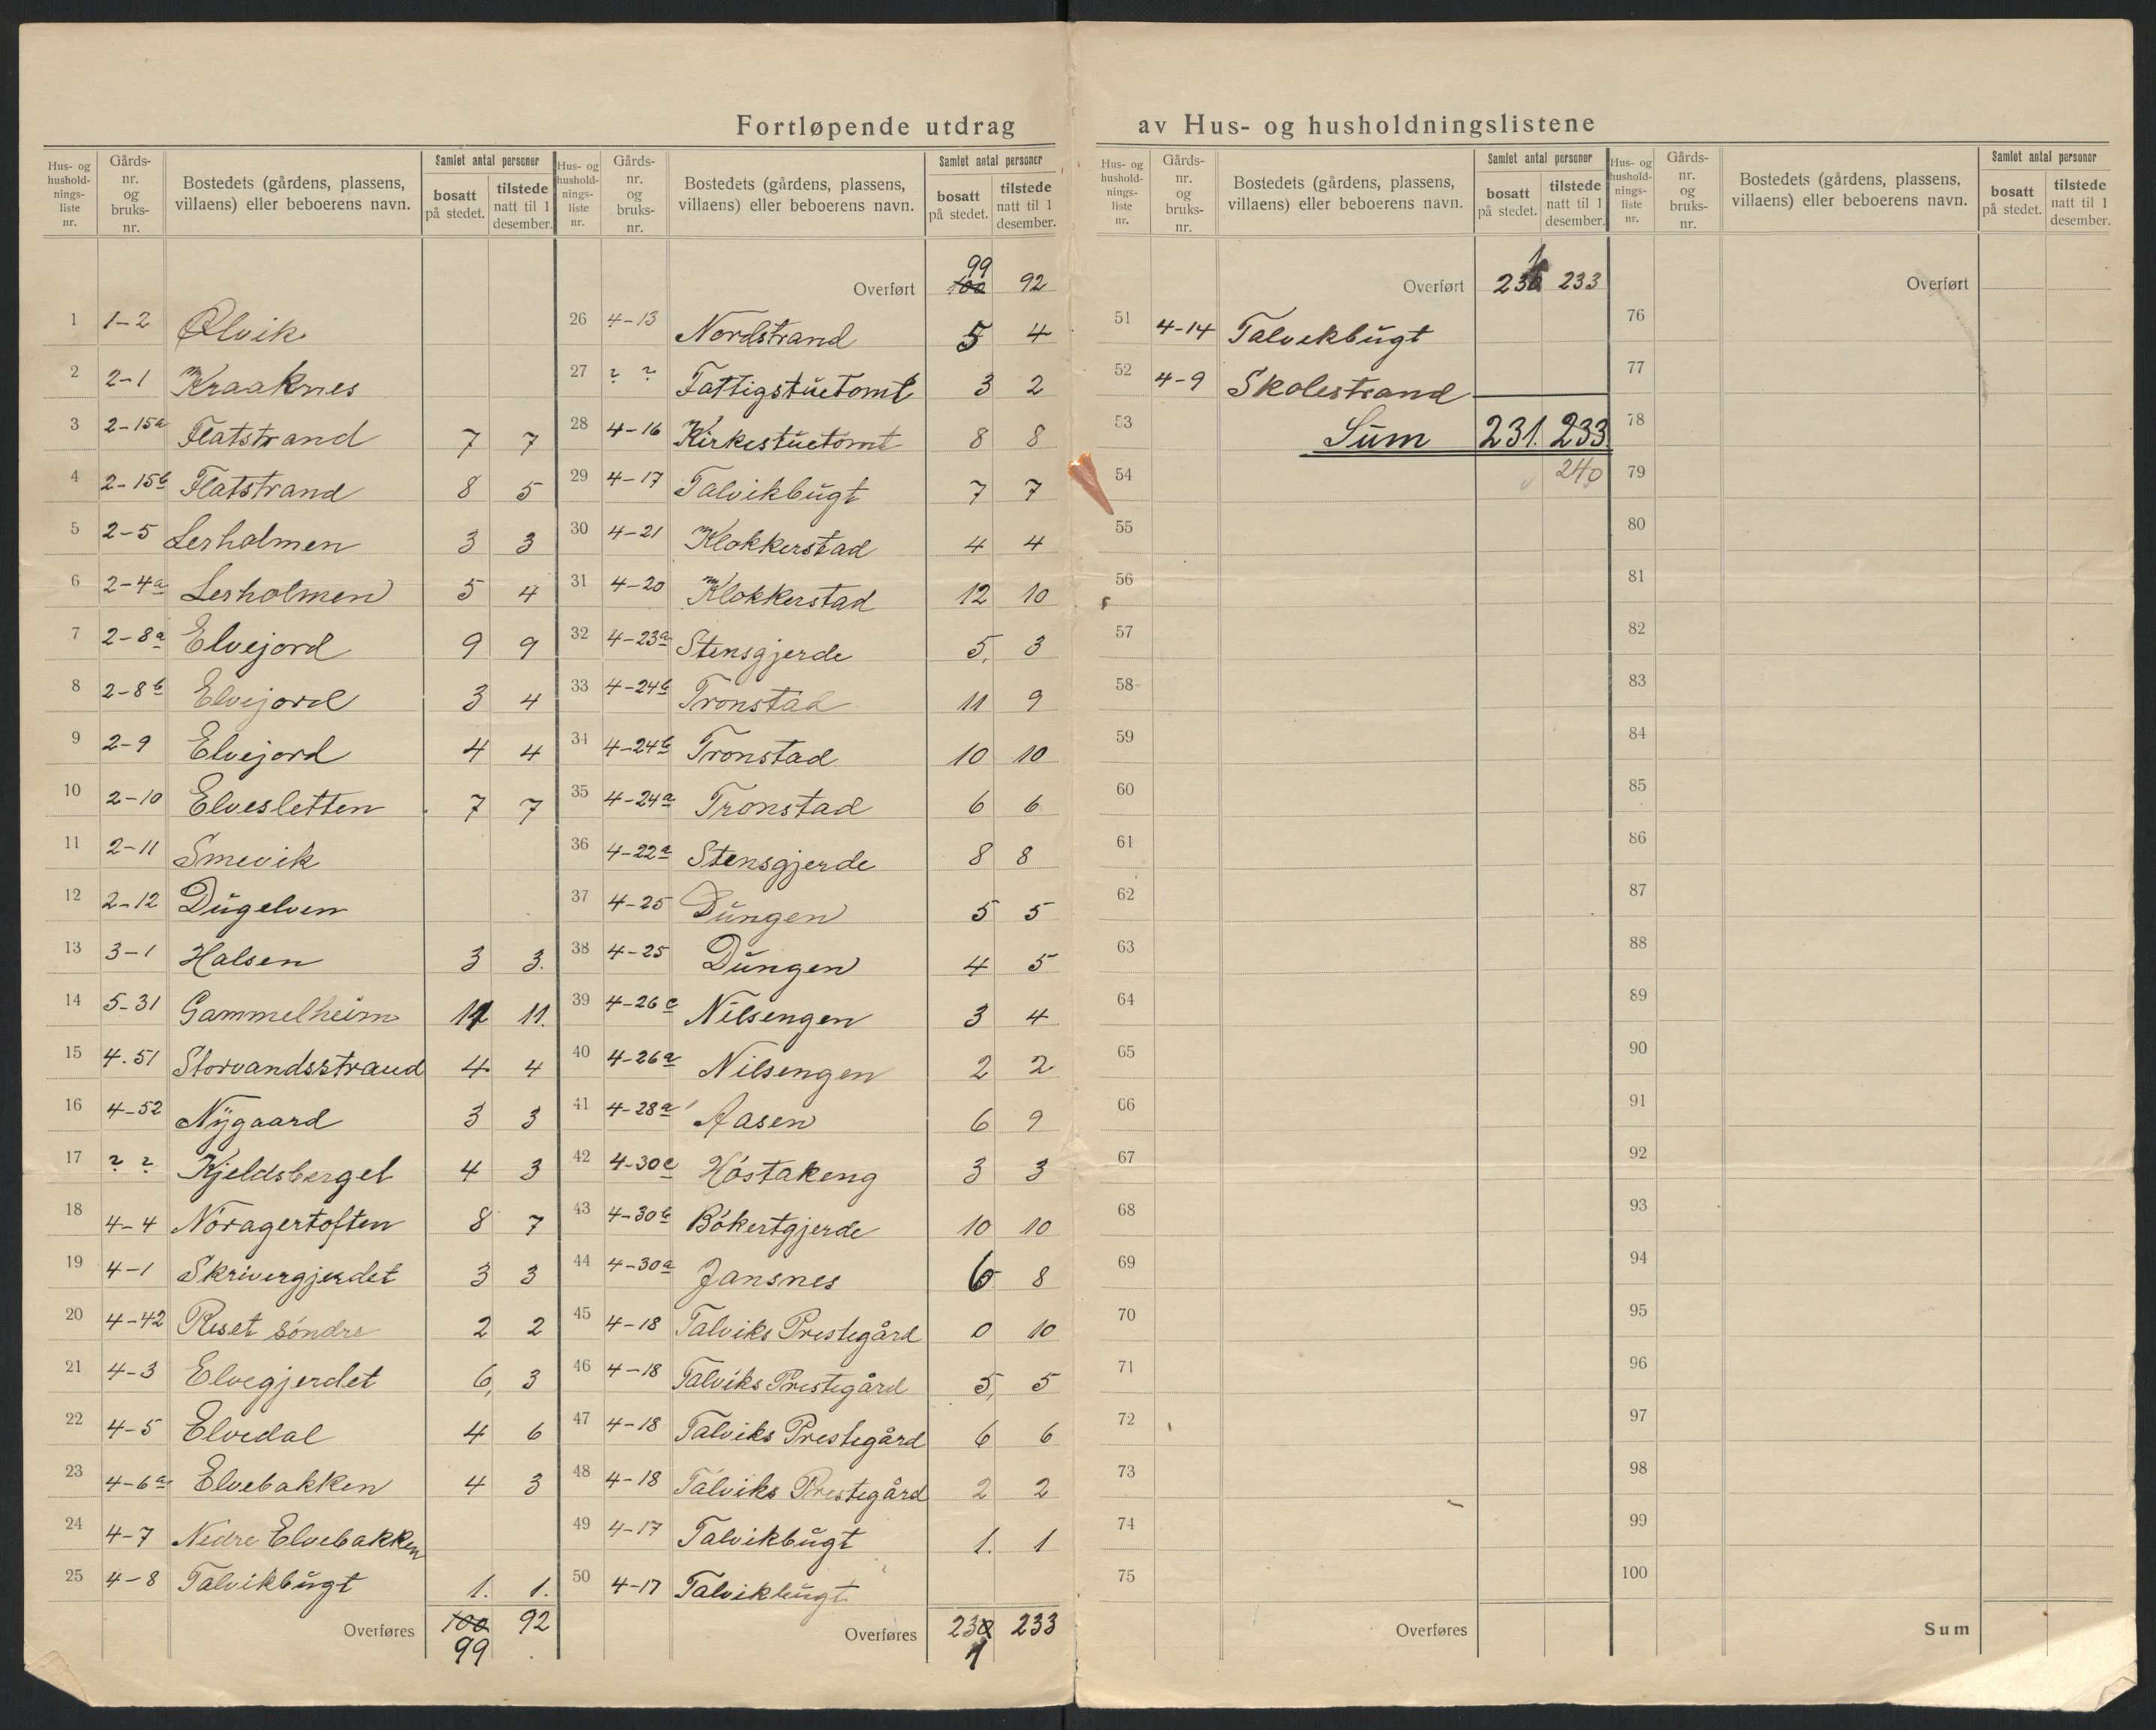 Fortløpende utdrag av Hus- og husholdningslistene
Hus- og husholdnings-liste nr. | Gårds-nr. og bruks-nr. | Bostedets (gårdens, plassens, villaens) eller beboerens navn. | Samlet antal personer | bosatt på stedet. | tilstede natt til 1 desember.
1 1-2 Ølvik
2 2-1 Kraaknes
3 2-15a Flatstrand 7 7
4 2-15b Flatstrand 8 5
5 2-5 Lerholmen 3 3
6 2-4a Lerholmen 5 4
7 2-8a Elvejord 9 9
8 2-8b Elvejord 3 4
9 2-9 Elvejord 4 4
10 2-10 Elvesletten 7 7
11 2-11 Smevik
12 2-12 Dugelven
13 3-1 Halsen 3 3.
14 5-31 Gammelheim 11 11.
15 4.51 Storvandsstrand 4 4
16 4-52 Nygaard 3 3
17 ? ? Kjeldsberget 4 3
18 4-4 Nóragertoften 8 7
19 4-1 Skrivergjerdet 3 3
20 4-42 Reset söndre 2 2
21 4-3 Elvegjerdet 6, 3
22 4-5 Elvedal 4 6
23 4-6a Elvebakken 4 3
24 4-7 Nedre Elvebakken
25 4-8 Talvikbugt 1. 1.
Overføres 100 92
99
Hus- og husholdnings-liste nr. | Gårds-nr. og bruks-nr. | Bostedets (gårdens, plassens, villaens) eller beboerens navn. | Samlet antal personer | bosatt på stedet. | tilstede natt til 1 desember.
99
Overført 100 92
26 4-13 Nordstrand 5 4
27 ? ? Fattigstuetomt 3 2
28 4-16 Kirkestuetomt 8 8
29 4-17 Talvikbugt 7 7
30 4-21 Klokkerstad 4 4
31 4-20 Klokkerstad 12 10
32 4-23a Stensgjerde 5, 3
33 4-24b Tronstad 11 9
34 4-24b Tronstad 10 10
35 4-24a Tronstad 6 6
36 4-22a Stensgjerde 8 8
37 4-25 Dungen 5 5
38 4-25 Dungen 4 5
39 4-26c Nilsengen 3 4
40 4-26a Nilsengen 2 2
41 4-28a Aasen 6 9
42 4-30c Hóstakeng 3 3
43 4-30b Bókertgjerde 10 10
44 4-30a Jansnes 6 8
45 4-18 Talviks Prestegård 0 10
46 4-18 Talviks Prestegård 5, 5
47 4-18 Talviks Prestegård 6 6
48 4-18 Talviks Prestegård 2 2
49 4-17 Talvikbugt 1. 1
50 4-17 Talvikbugt
Overføres 230 233
1
Hus- og husholdnings-liste nr. | Gårds-nr. og bruks-nr. | Bostedets (gårdens, plassens, villaens) eller beboerens navn. | Samlet antal personer | bosatt på stedet. | tilstede natt til 1 desember.
1
Overført 230 233
51 4-14 Talvekbugt
52 4-9 Skolestrand
53 Sum 231. 233
54 240
55
56
57
58
59
60
61
62
63
64
65
66
67
68
69
70
71
72
73
74
75
Overføres
Hus- og husholdnings-liste nr. | Gårds-nr. og bruks-nr. | Bostedets (gårdens, plassens, villaens) eller beboerens navn. | Samlet antal personer | bosatt på stedet. | tilstede natt til 1 desember.
Overført
76
77
78
79
80
81
82
83
84
85
86
87
88
89
90
91
92
93
94
95
96
97
98
99
100
Sum